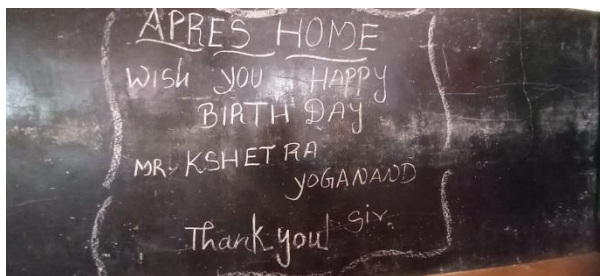 APRES HOME
Wish YOU HAPPY
BIRTH DAY
MR. KSHETRA
YOGANAND
Thank you! Sir.